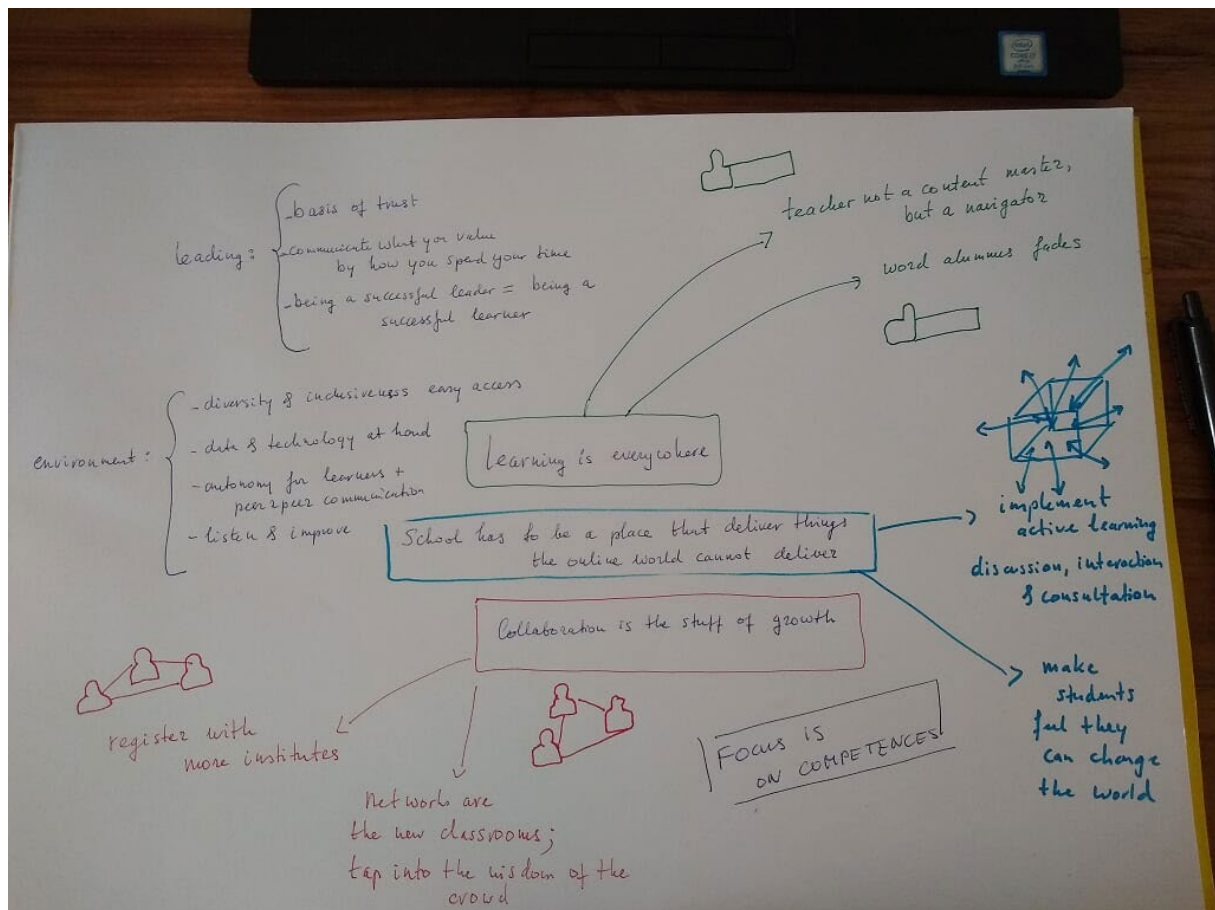 intel
CORE i7
leading:
- basis of trust
- communicate what you value
by how you spend your time
- being a successful leader = being a
successful learner
teacher not a content master,
but a navigator
word alumnus fades
environment:
- diversity & inclusiveness easy access
- data & technology at hand
- autonomy for learners +
peer2peer communication
- listen & improve
Learning is everywhere
School has to be a place that deliver things
the online world cannot deliver
implement
active learning
discussion, interaction
& consultation
make
students
feel they
can change
the world
Collaboration is the stuff of growth
register with
more institutes
Networks are
the new classrooms;
tap into the wisdom of the
crowd
FOCUS IS
ON COMPETENCES